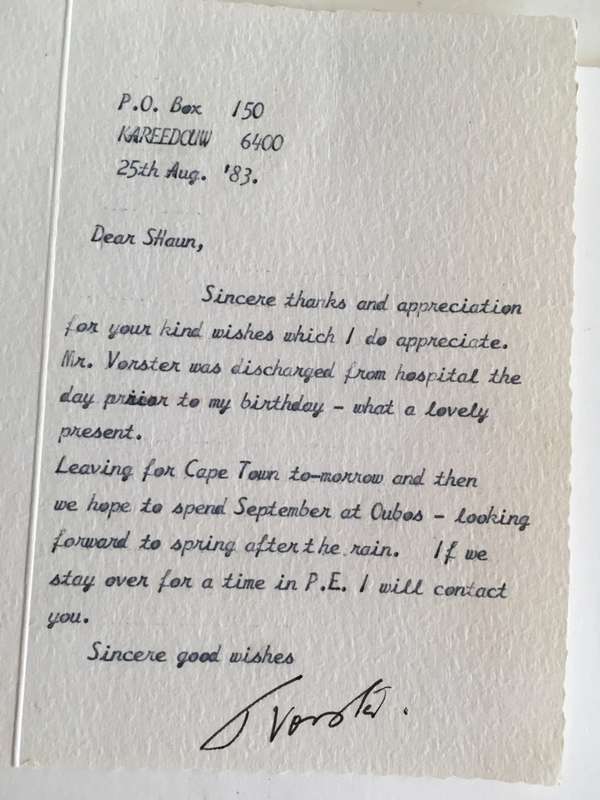 P.O. Box 150
KAREEDOUW 6400
25th Aug. '83.
Dear SHaun,
Sincere thanks and appreciation
for your kind wishes which I do appreciate.
Mr. Vorster was discharged from hospital the
day prior to my birthday - what a lovely
present.
Leaving for Cape Town to-morrow and then
we hope to spend September at Oubos - looking
forward to spring after the rain. If we
stay over for a time in P.E. I will contact
you.
Sincere good wishes
Vorster.